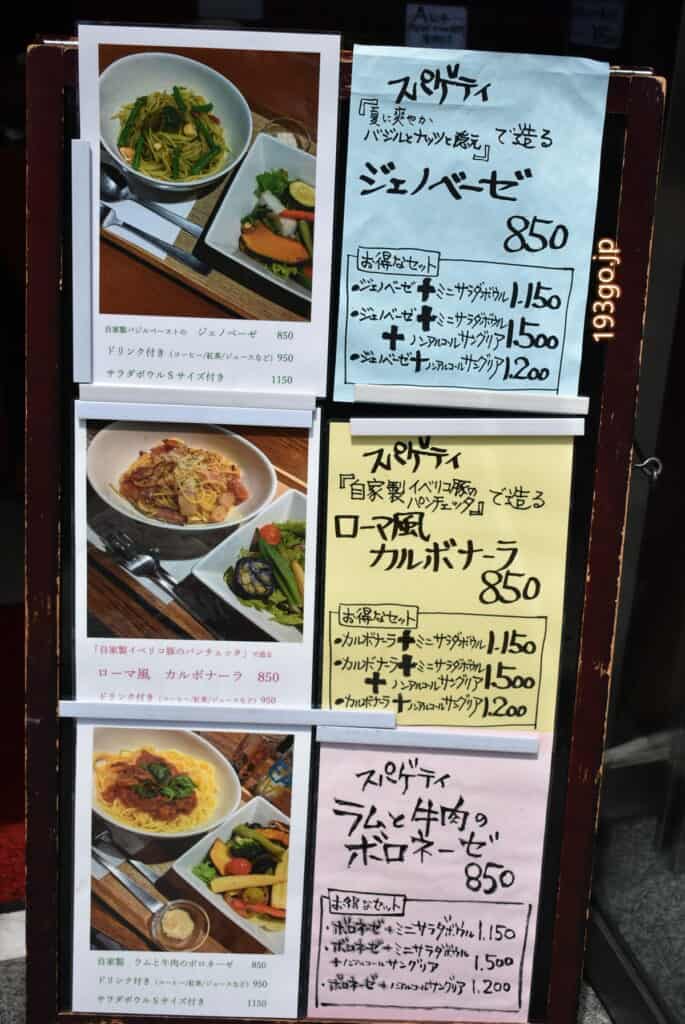 自家製バジルペーストの ジェノベーゼ 850
ドリンク付き(コーヒー/紅茶/ジュースなど) 950
サラダボウルSサイズ付き 1150
スパゲティ
『夏に爽やか
バジルとナッツと隠元』で造る
ジェノベーゼ
850
お得なセット
•ジェノベーゼ+ミニサラダボウル 1.150
•ジェノベーゼ+ミニサラダボウル
+ノンアルコールサングリア 1.500
•ジェノベーゼ+ノンアルコールサングリア 1.200
193go.jp
「自家製イベリコ豚のパンチェッタ」で造る
ローマ風 カルボナーラ 850
ドリンク付き(コーヒー/紅茶/ジュースなど) 950
スパゲティ
『自家製イベリコ豚の
パンチェッタ』で造る
ローマ風
カルボナーラ
850
お得なセット
•カルボナーラ+ミニサラダボウル 1.150
•カルボナーラ+ミニサラダボウル
+ノンアルコールサングリア 1.500
•カルボナーラ+ノンアルコールサングリア 1.200
自家製 ラムと牛肉のボロネーゼ 850
ドリンク付き(コーヒー/紅茶/ジュースなど) 950
サラダボウルSサイズ付き 1150
スパゲティ
ラムと牛肉の
ボロネーゼ
850
お得なセット
・ボロネーゼ+ミニサラダボウル 1.150
・ボロネーゼ+ミニサラダボウル
+ノンアルコールサングリア 1.500
・ボロネーゼ+ノンアルコールサングリア 1.200